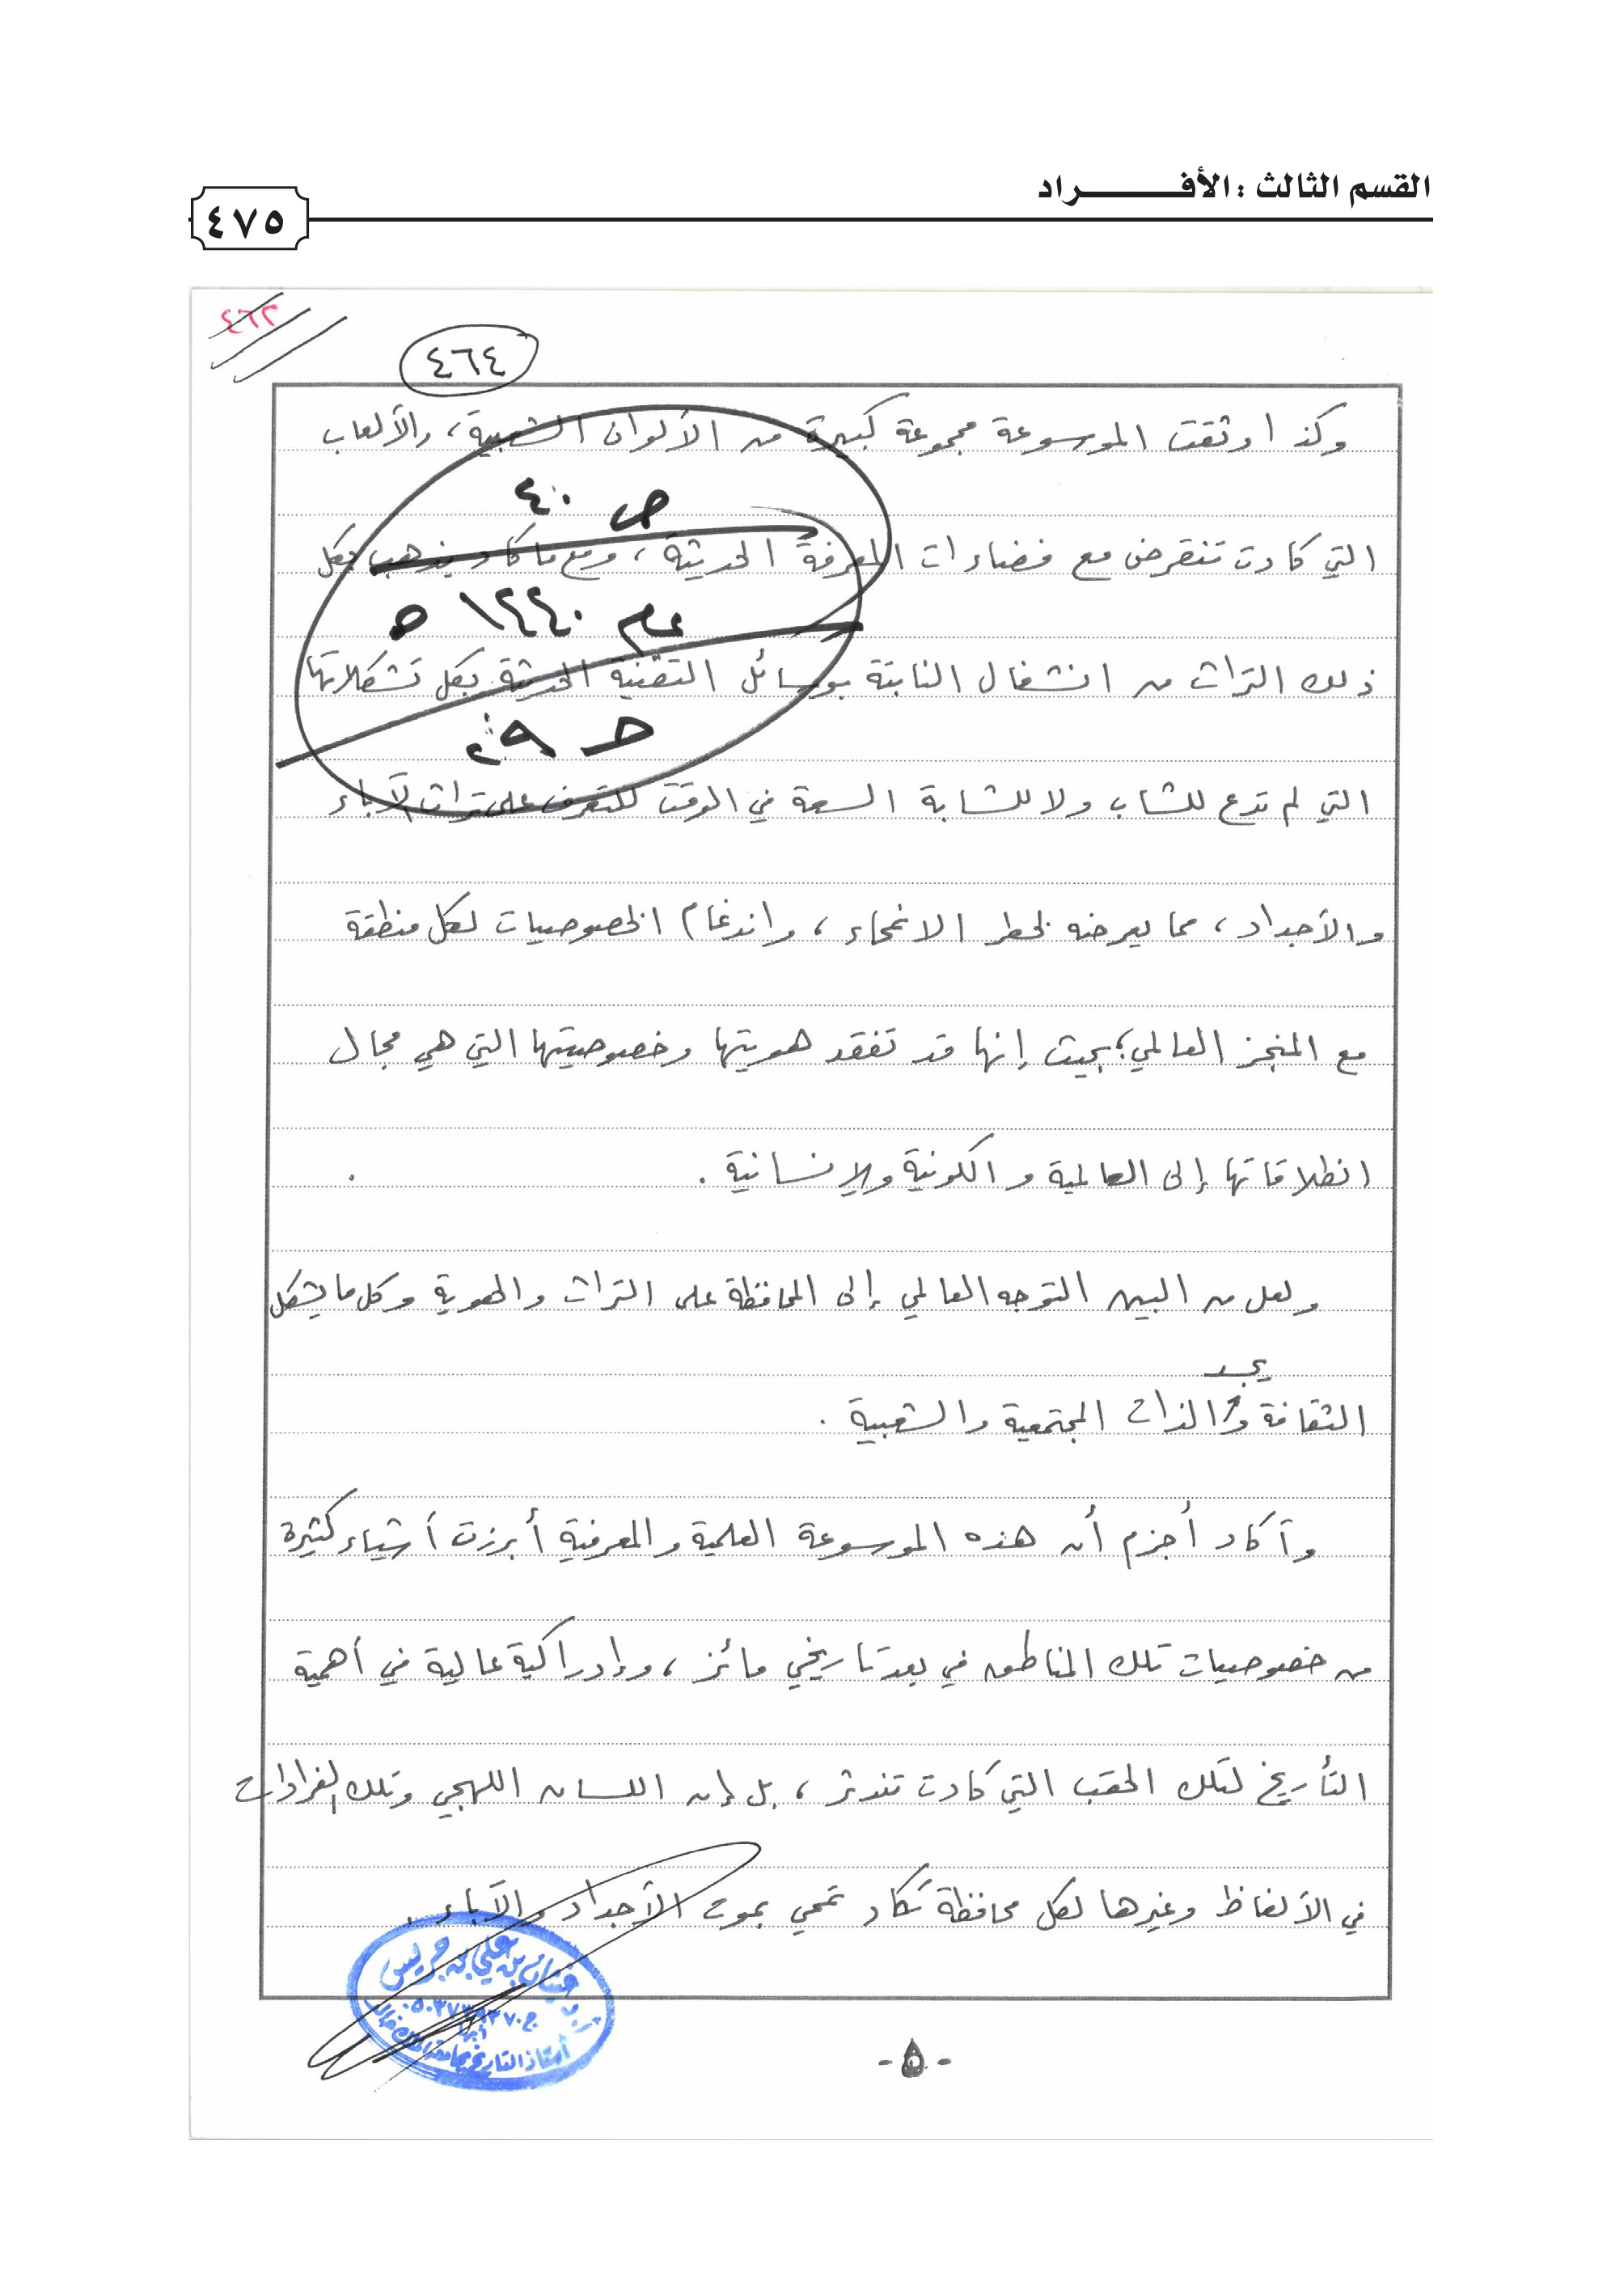 القسم الثالث : الأفـــــــراد
٤٧٥
٤٦٢
٤٦٤
وكذا وثقت الموسوعة مجموعة كبيرة من الألوان الشعبية، والألعاب
ص ٤٠
التي كادت تنقرض مع فضاءات المعرفة الحديثة، ومع ما كاد يذهب بكل
عام ١٤٤٠ هـ
ذلك التراث من انشغال النابتة بوسائل التقنية الحديثة بكل تشكلاتها
التي لم تدع للشاب ولا للشابة السعة في الوقت للتعرف على تراث الآباء
والأجداد، مما يعرضه لخطر الانمحاء، واندغام الخصوصيات لكل منطقة
مع المنجز العالمي؛ بحيث إنها قد تفقد هويتها وخصوصيتها التي هي مجال
انطلاقاتها إلى العالمية والكونية والإنسانية .
ولعل من البين التوجه العالمي إلى المحافظة على التراث والهوية وكل ما يشكل
الثقافة والذات المجتمعية والشعبية .
وأكاد أجزم أن هذه الموسوعة العلمية والمعرفية أبرزت أشياء كثيرة
من خصوصيات تلك المناطق في بعد تاريخي مائز، وإدراكية عالية في أهمية
التأريخ لتلك الحقب التي كادت تندثر، بل إن اللسان اللهجي وتلك الفرادات
في الألفاظ وغيرها لكل محافظة تكاد تمحي بموت الأجداد والآباء .
بن علي بن جريس
أستاذ التاريخ بجامعة الملك خالد
-٥-